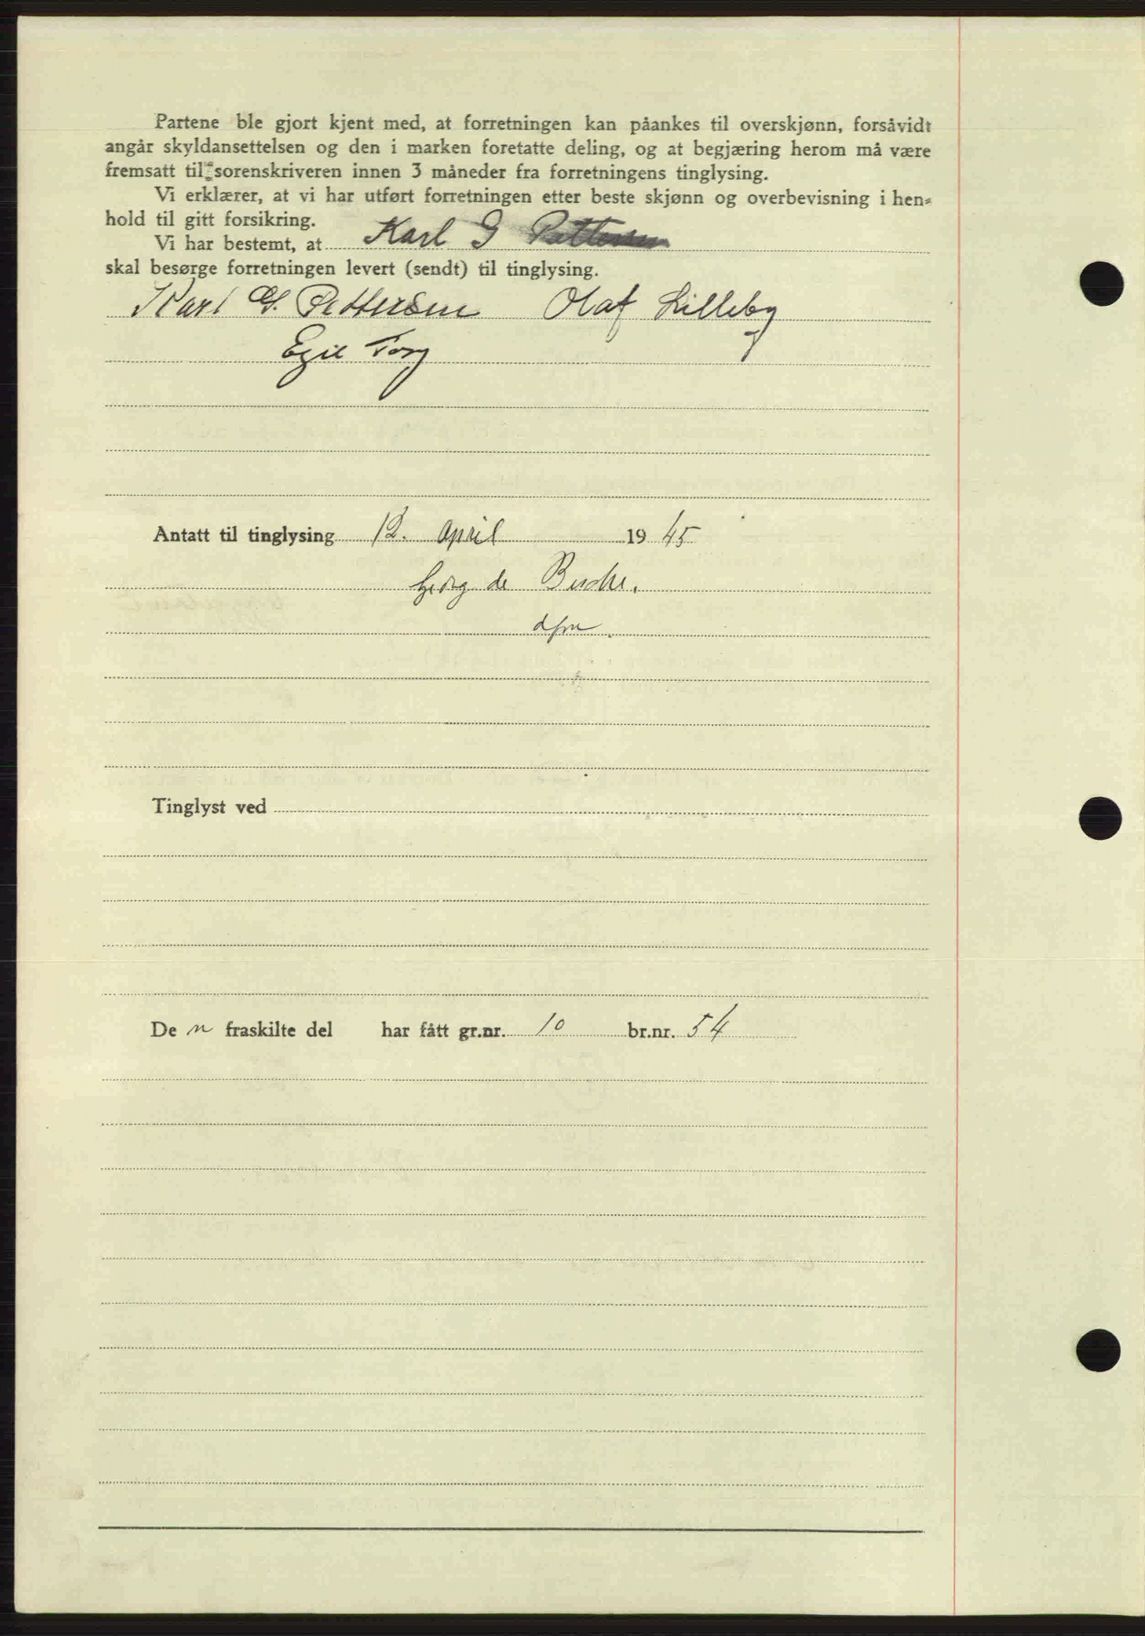 Partene ble gjort kjent med, at forretningen kan påankes til overskjønn, forsåvidt
angår skyldansettelsen og den i marken foretatte deling, og at begjæring herom må være
fremsatt til sorenskriveren innen 3 måneder fra forretningens tinglysing.
Vi erklærer, at vi har utført forretningen etter beste skjønn og overbevisning i hen-
hold til gitt forsikring.
Vi har bestemt, at Karl G Pettersen
skal besørge forretningen levert (sendt) til tinglysing.
Karl G. Pettersen Olaf Lilleby
Egil
Antatt til tinglysing 12. april 1945
Georg de
Tinglyst ved
De n fraskilte del har fått gr.nr. 10 br.nr. 54